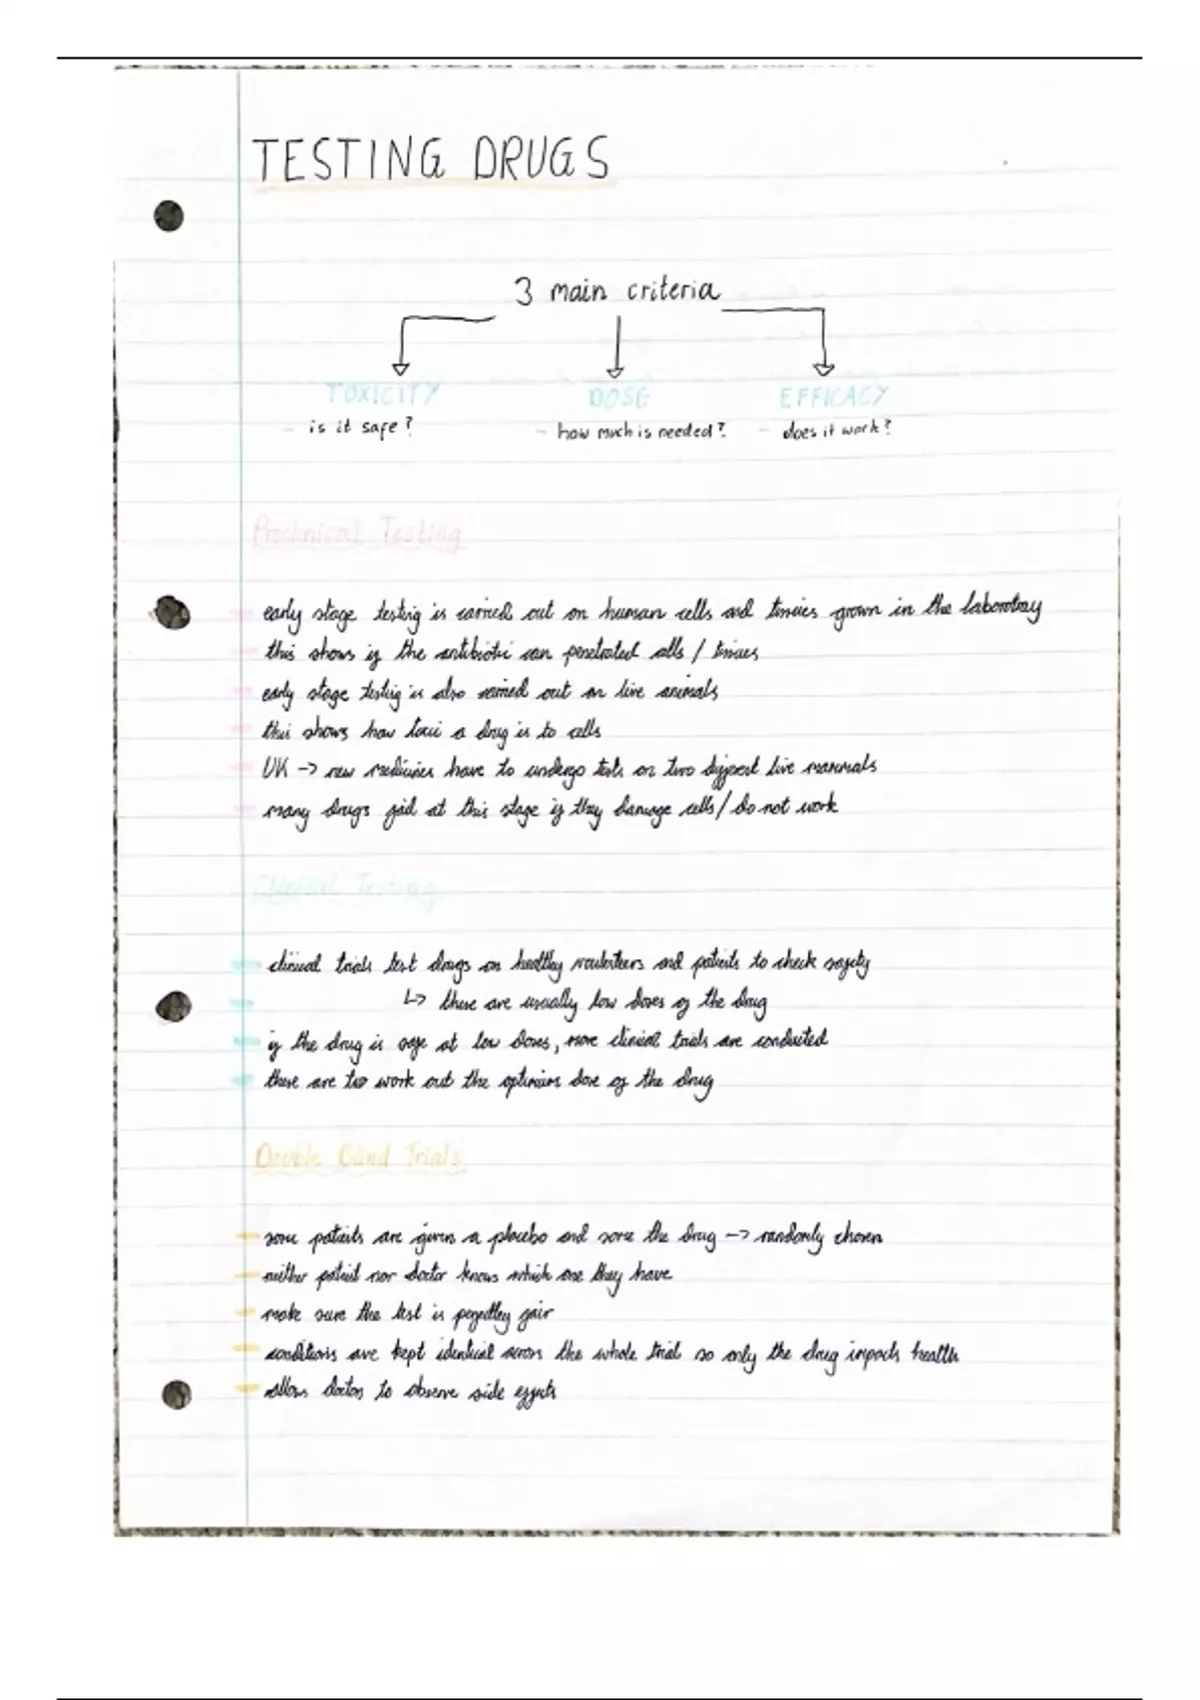 TESTING DRUGS
3 main criteria
TOXICITY DOSE EFFICACY
- is it safe? - how much is needed? - does it work?
Preclnical Testing
- early stage testing is carried out on human cells and tissues grown in the laborotray
- this shows if the antibiotic can penetrated cells / tissues
- early stage testing is also carried out on live animals
- this shows how toxic a drug is to cells
- UK -> new medicines have to undergo tests on two different live mammals
- many drugs fail at this stage if they damage cells / do not work
Clinical Testing
- clinical trials test drugs on healthy volunteers and patients to check safety
- ↳ these are usually low doses of the drug
- if the drug is safe at low doses, more clinical trials are conducted
- these are to work out the optimum dose of the drug
Double Blind Trials
- some patients are given a placebo and some the drug -> randomly chosen
- neither patient nor doctor knows which one they have
- make sure the test is perfectley fair
- conditions are kept identical across the whole trial so only the drug impacts health
- allows doctors to observe side effects